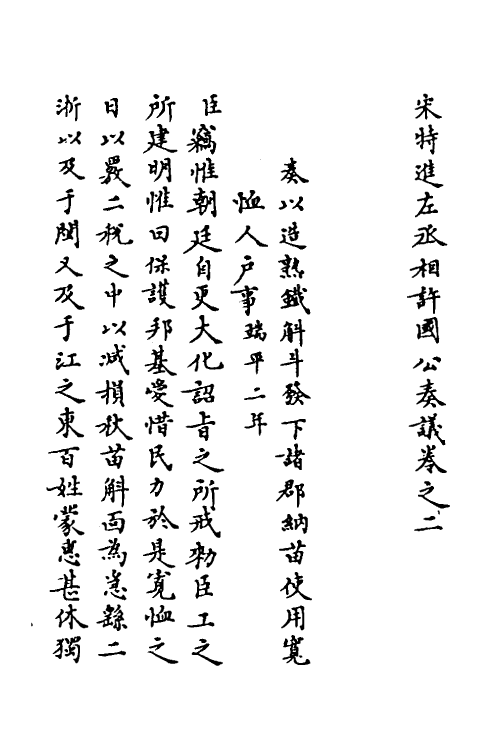 宋特進左丞相許國公奏議卷之二
奏以造熟鐵斛斗發下諸郡納苗使用寬
恤人戶事端平二年
臣竊惟朝廷自更大化詔旨之所戒勑臣工之
所建明惟曰保護邦基愛惜民力於是寬恤之
日以嚴二稅之中以減損秋苗斛面為急繇二
浙以及于閩又及于江之東百姓蒙惠甚休獨